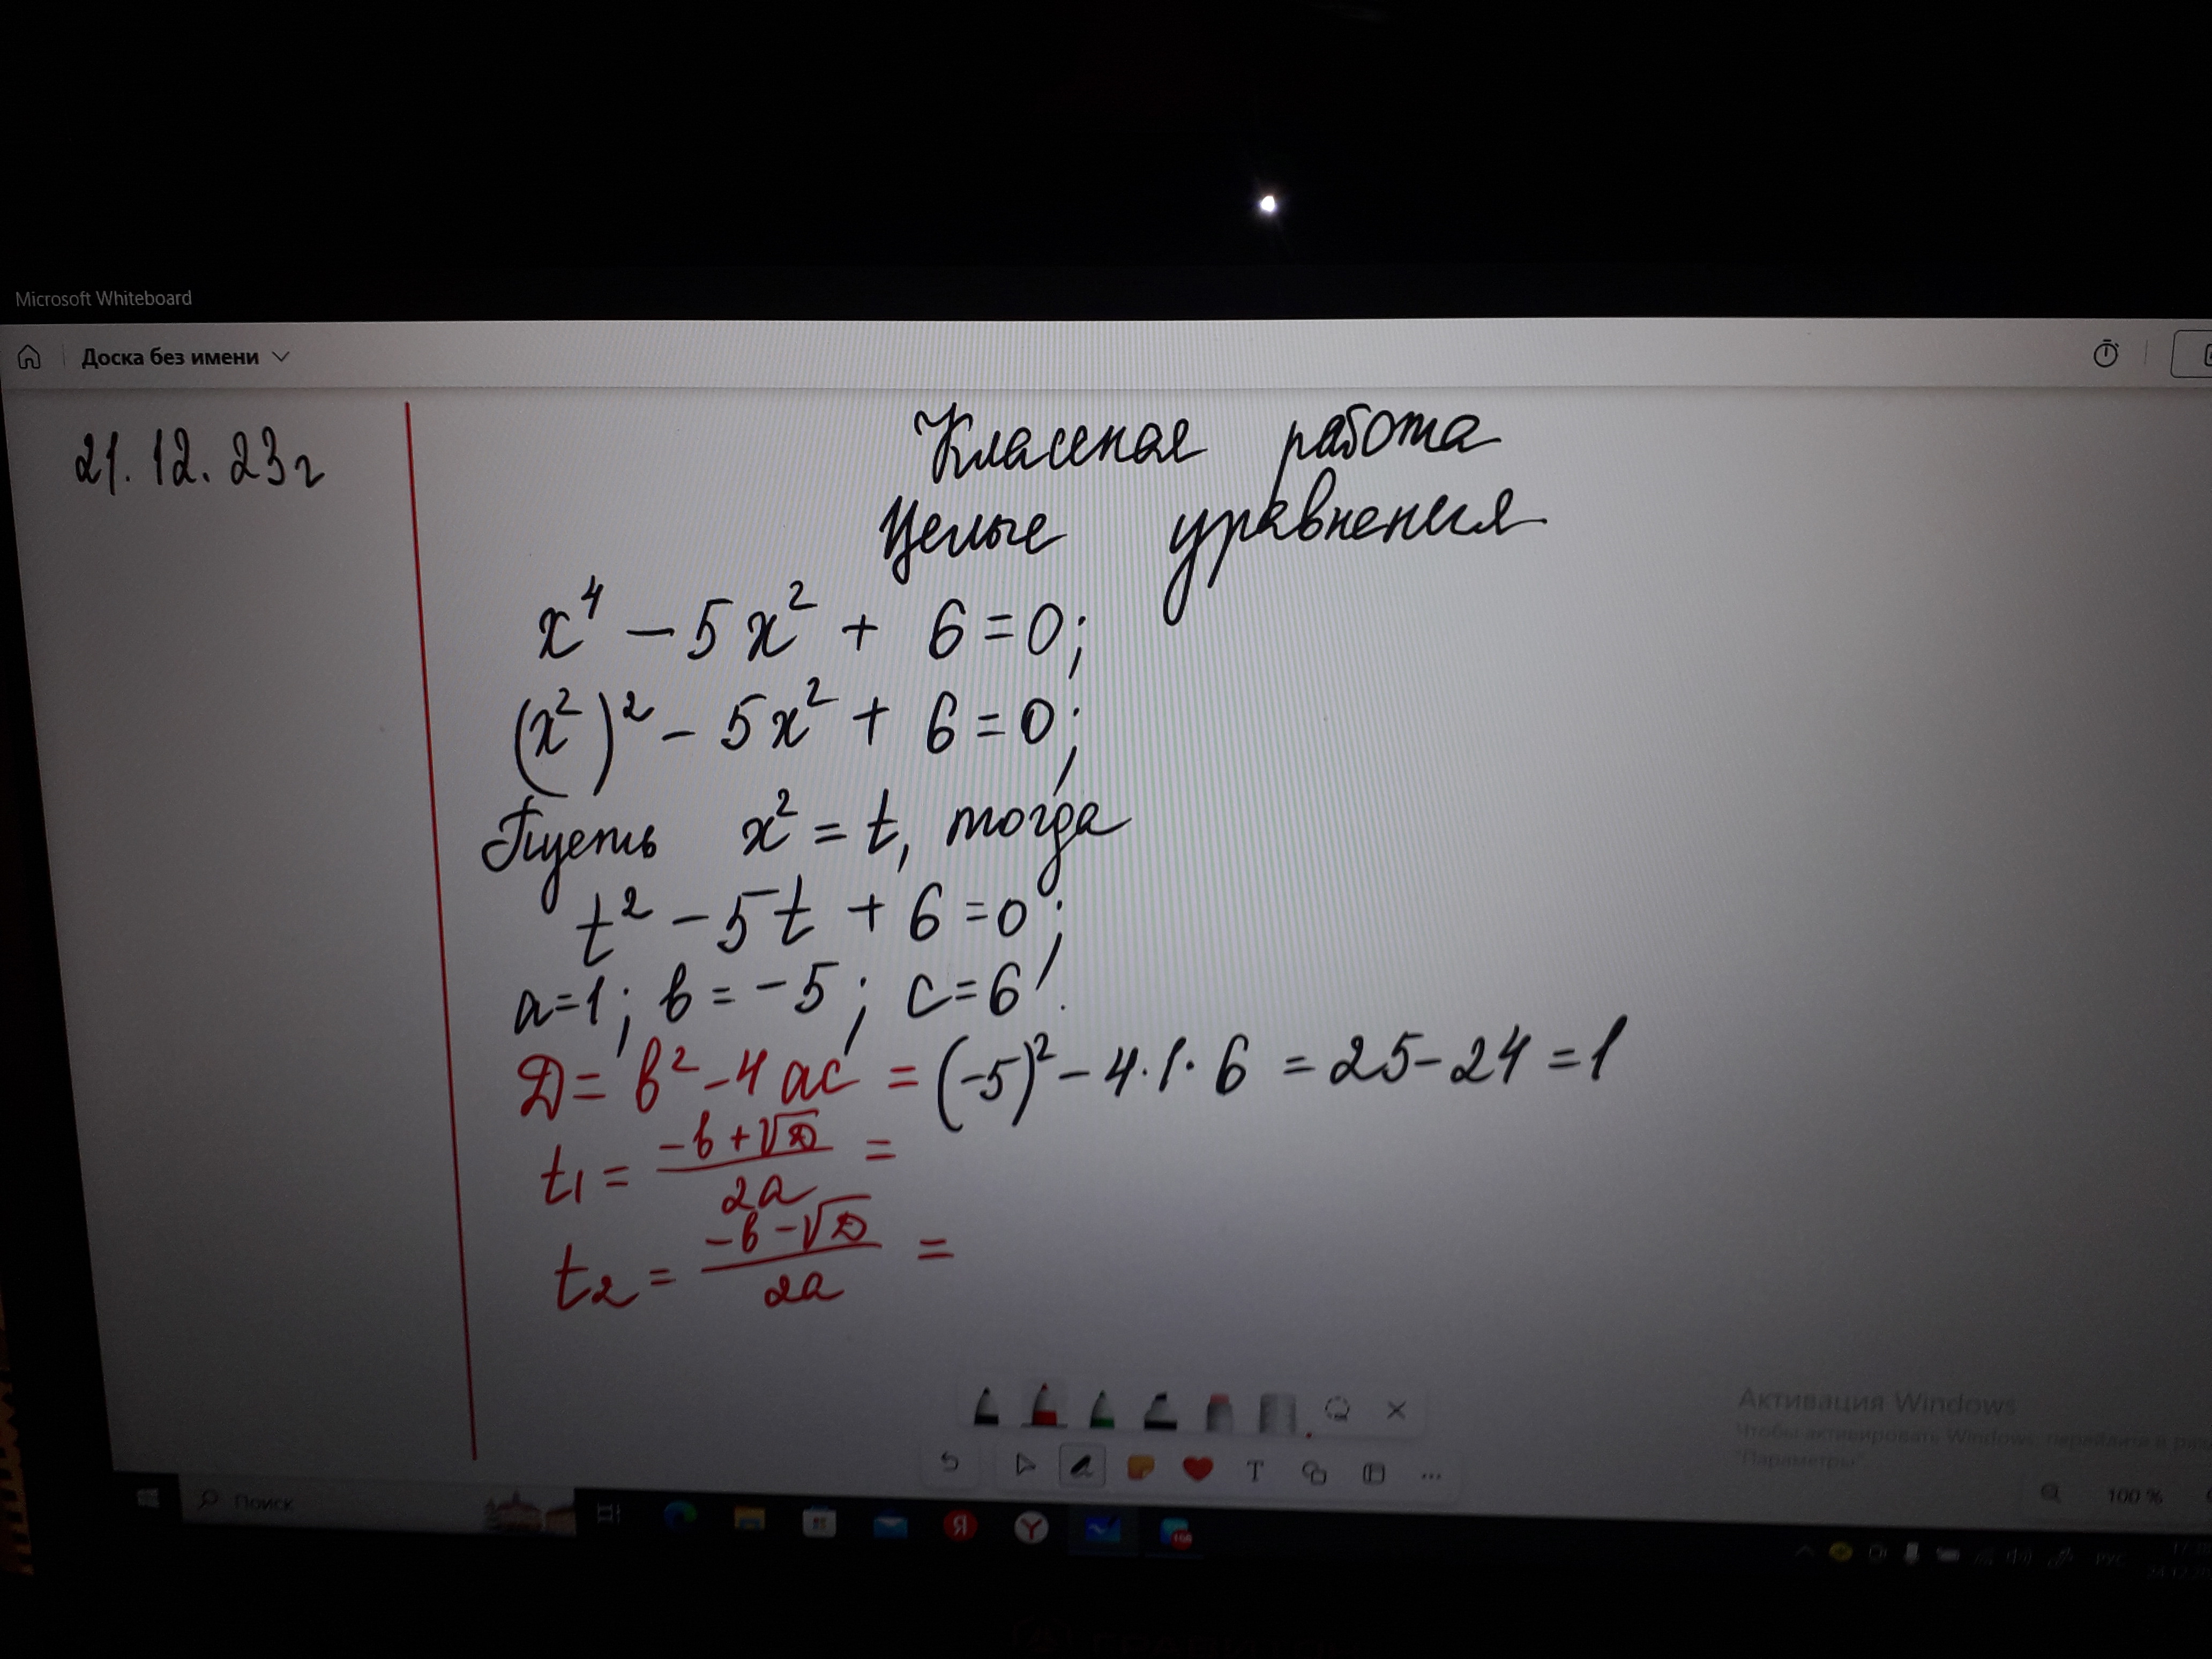 Microsoft Whiteboard
Доска без имени
21.12.23г
Классная работа
Целые уравнения
x⁴ – 5x² + 6 = 0;
(x²)² – 5x² + 6 = 0;
Пусть x² = t, тогда
t² – 5t + 6 = 0;
a=1; b = –5; c=6;
D = b² – 4ac = (–5)² – 4·1·6 = 25 – 24 = 1
t₁ = (–b + √D)/2a =
t₂ = (–b – √D)/2a =
Активация Windows
Чтобы активировать Windows, перейдите в раз
"Параметры".
100 %
Поиск
РУС